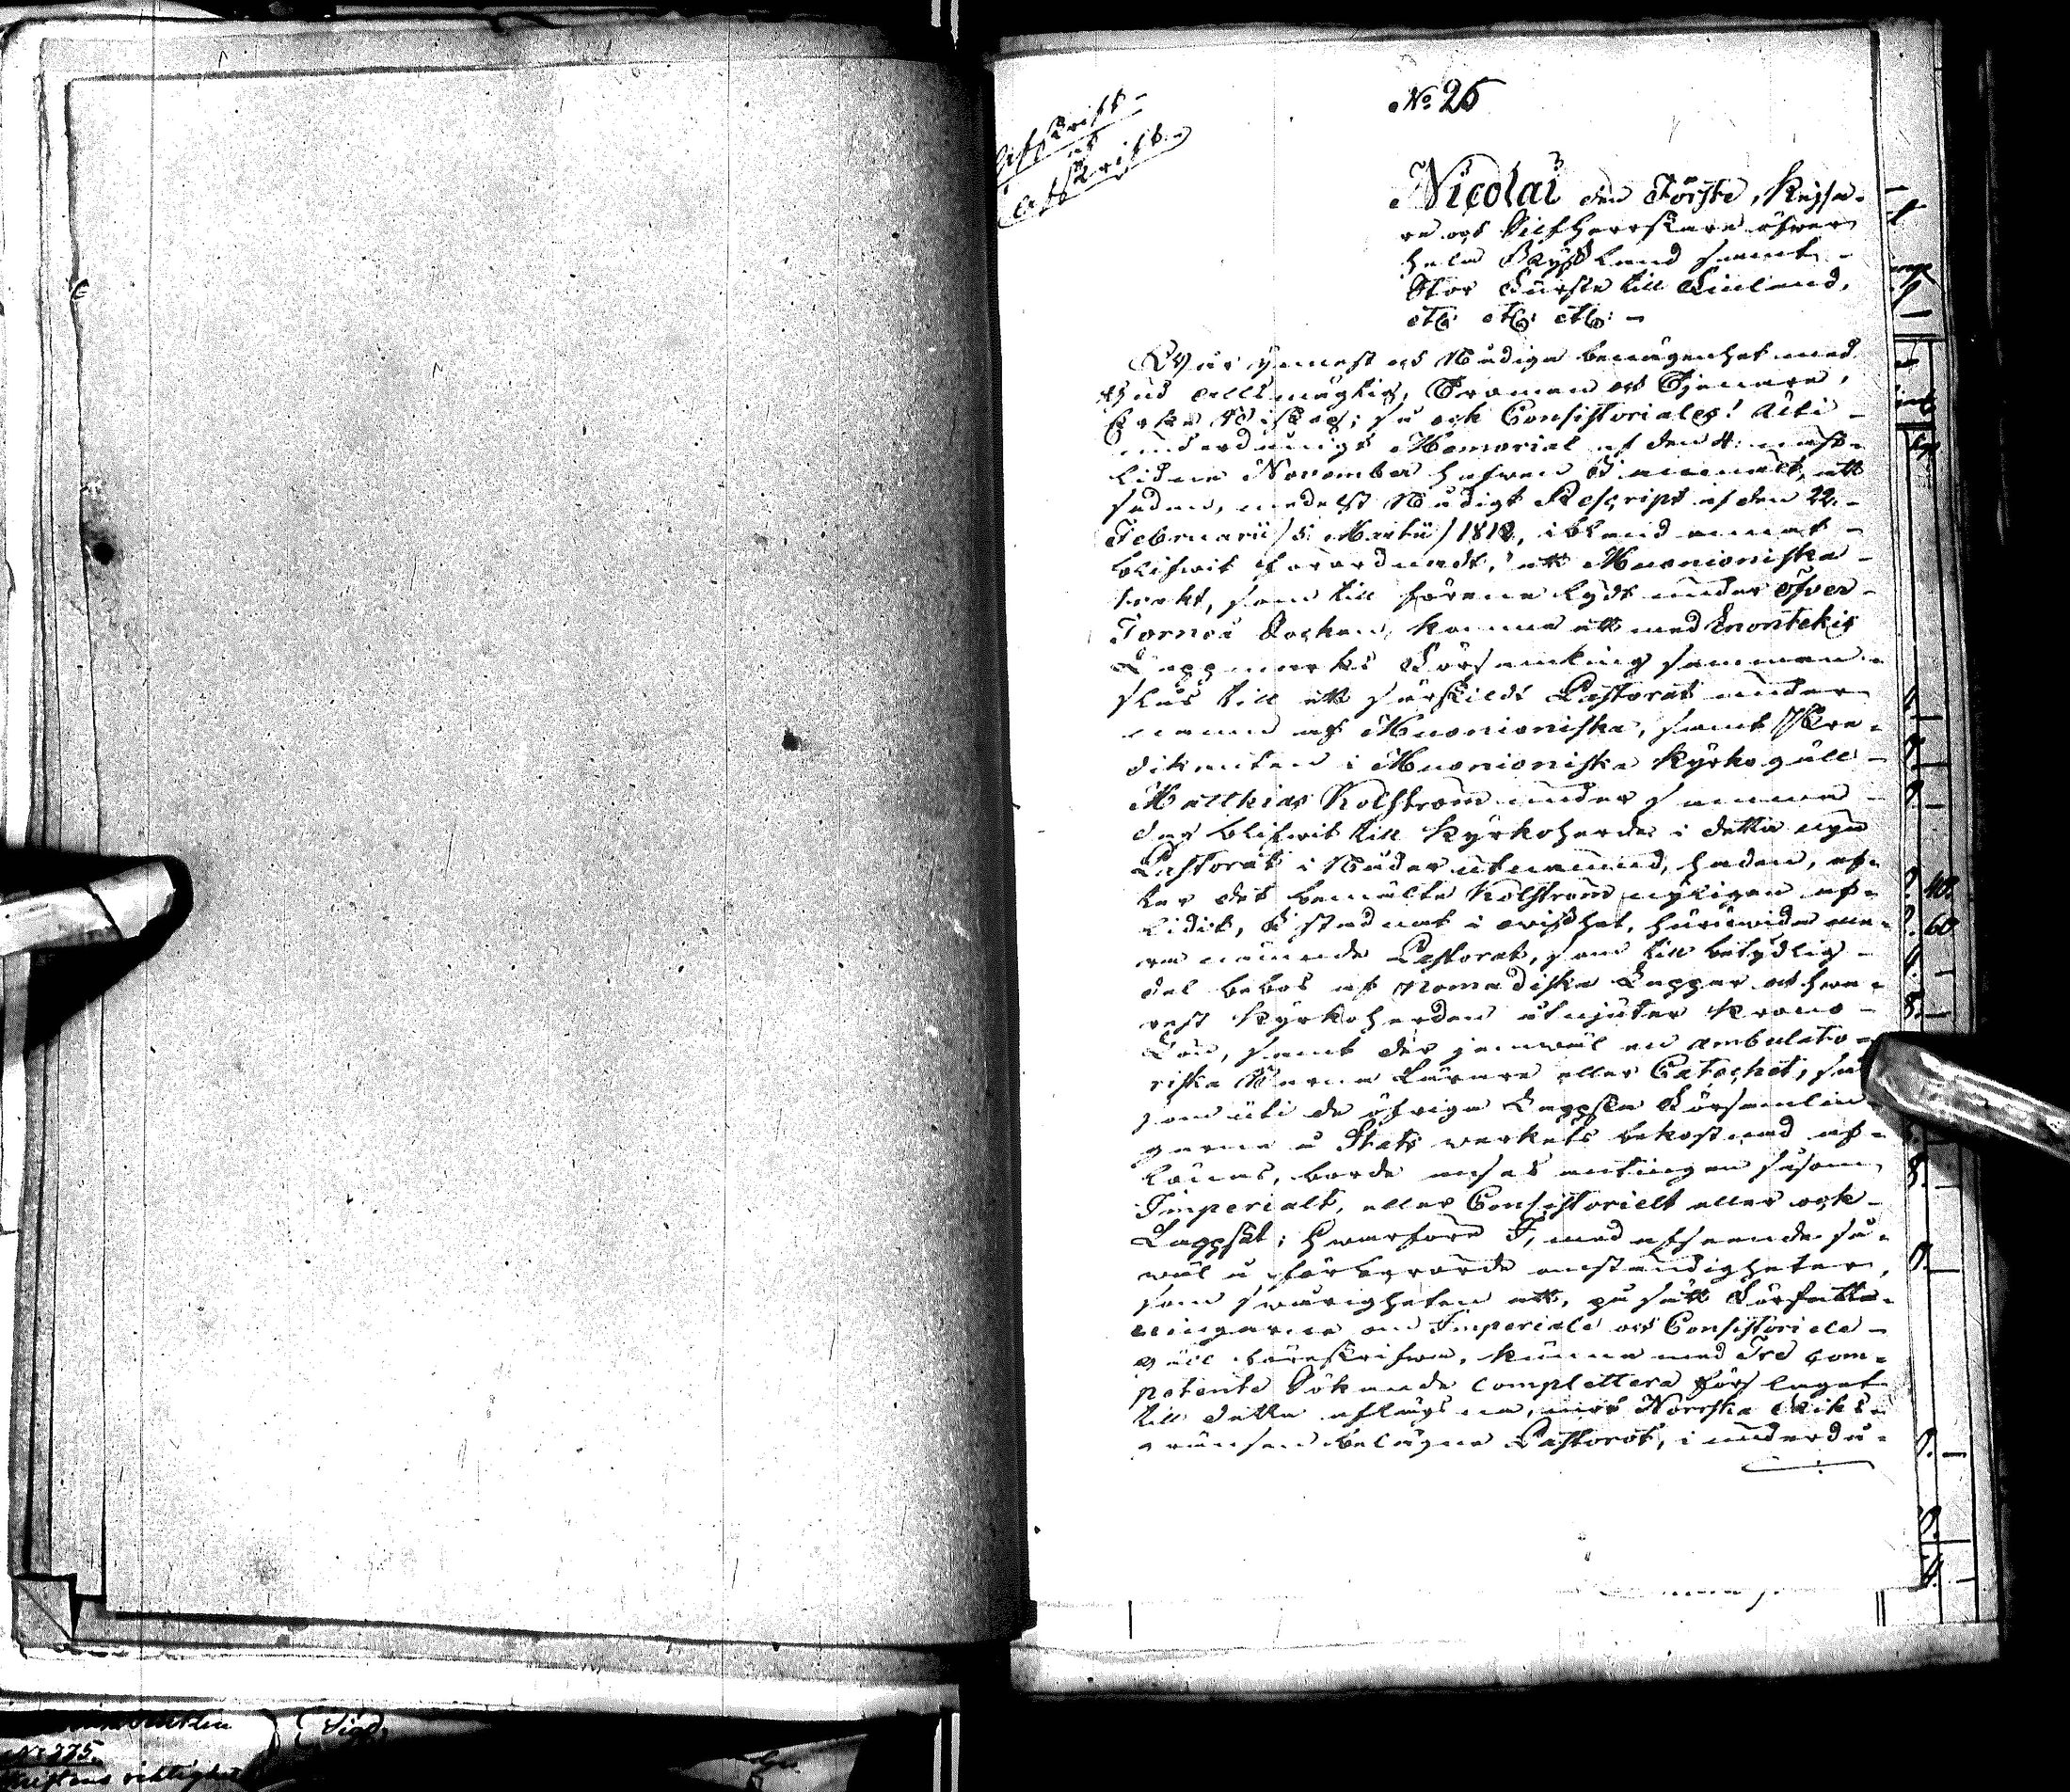 No 26
Afskrift
af
Afskrift.
Nicolai den Förste, Kejsa-
re och Sielfherrskare öfwer
hela Ryssland samt
Stor Furste till Finland,
etc. etc. etc.
Wår ynnest och Nådiga benägenhet med
Gud allsmägtig, Troman och Tjenare,
Biskop; så ock Consistoriales! Uti
underdånigt Memorial af den 4. nast-
lidne November hafwen I anmält, att
sedan, medelst Nådigt Rescript af den 22.
Februarii /5. Martii/ 1818, ibland annat
blifwit förordnadt, att Muonioniska
trakt, som till förene lydt under Öfver-
Torneå Socken, komme att med Enontekis
Lappmarks Församling samman-
slås till ett särskildt Pastorat under
namn af Muonioniska, samt Pre-
dikanten i Muonioniska Kyrkogäll
Matthias Kolström under samma
dag blifwit till Kyrkoherde i detta nya
Pastorat i Nåder utnamnd, haden, ef-
ter det bemälte Kolström nyligen af-
lidit, I stadnat i owisshet, huruwida me-
ra nämnde Pastorat, som till betydlig
del bebos af nomadiska Lappar och hwa-
rest Kyrkoherden åtnjuter Krono-
Lön, samt der jemwäl en ambulato-
riska Barna Lärare eller Catechet, så
som uti de öfriga Lappska Församlin-
garne å Stats werkets bekostnad af-
lönas, borde anses antingen såsom
Imperialt, eller Consistorielt eller ock
Lappskt; Hwarföre I, med afseende så-
wäl å förberörde omständigheter,
som swårigheten att, på sätt Författ-
ningarne om Imperiela och Consistoriela
gäll föreskrifwa, kunna med Tre com-
petente Sökande complettera förslaget
till detta aflägsna, mot Norrska Riks-
gränsen belägna Pastorat, i underdå-